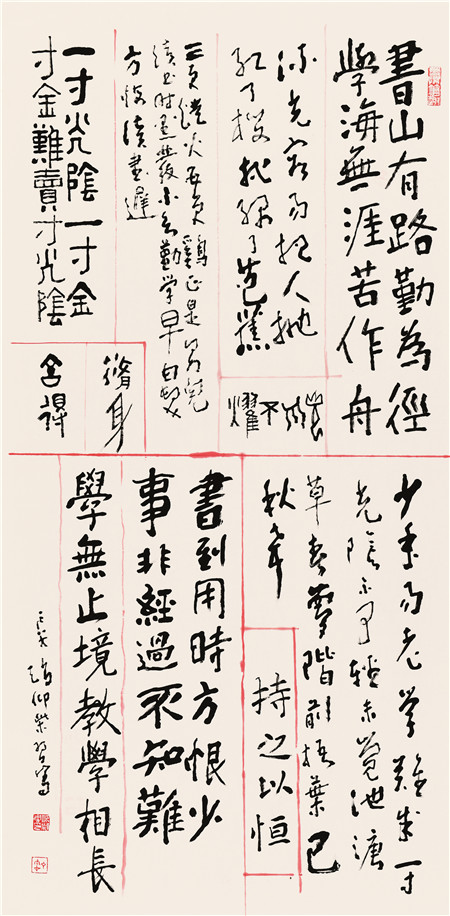 書山有路勤為徑
學海無涯苦作舟
流光容易把人抛
紅了櫻桃綠了芭蕉
不燿
三更燈火五更雞正是男兒
讀書時黑髮不知勤學早白髮
方悔讀書遲
一寸光陰一寸金
寸金難買寸光陰
脩身
舍得
少年易老學難成一寸
光陰不可輕未覺池塘
草春夢階前梧葉已
秋聲
持之以恒
書到用時方恨少
事非經過不知難
學無止境教學相長